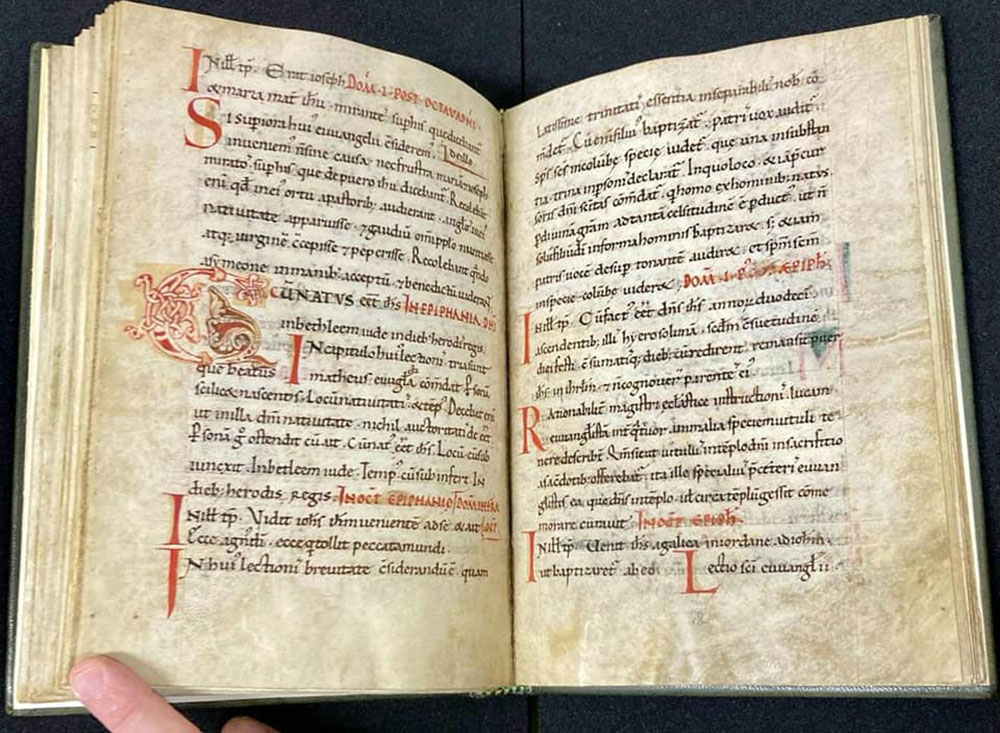 IN ill' tp. Erat ioseph DOM I POST OCTAVAS DNI
& maria mat ihu mirantes sup his que dicebant
SI supiora hui euuangelii csiderem. de illo
inueniem n sine causa nec frustra maria & ioseph
miratos sup his que de puero ihu dicebant. Recolebat
eni qd in ei ortu a pastorib audierant angelos in ei
natiuitate apparuisse & gaudiu omi pplo nuntiasse
atq; uirgine ccepisse & peperisse. Recolebant qndo
a symeone in manib acceptu & benedictu uiderant
CU NATVS eet ihs IN EPIPHANIA DNI
in bethleem iude in dieb herodis regis.
IN capitulo hui lectionis triasunt
que beatus matheus euuglsta comdat. psona
scilic& nascentis. Locu natiuitatis. & tepus. Decebat eni
ut in illa dni natiuitate nichil auctoritati de eet
psona g ostendit cu ait. Cu nat eet ihs. Locu cu sub
iuncxit. In betleem iude. Temp cu subinfert. In
dieb herodis regis. IN OCT EPIPHANIE
IN ill' tp. Vidit iohs ihm ueniente ad se & ait
Ecce agn di ecce q tollit peccata mundi.
IN hui lectionis breuitate csiderandu e quam
latissime trinitatis essentia inseparabilis nob co
mdet. Cu eni filius baptizat patris uox audit
sps scs in colube specie uidet que una in substan
tia trina in psonis declarat. In quo loco & iapcur
soris dni scitas comdat q homo ex hominib; natus
p diuina gram ad tanta celsitudine e pduct ut n
solu filiu di in forma hominis baptizar& s; & uam
patris uoce desup tonante audir& et spm scm
in specie colube uider&. DOM I POST EPIPH
IN ill' tp. Cu fact eet dns ihs annor duodeci
ascendentib; illis hyerosolima scdm csuetudine
diei festi csumatisq; dieb; cu redirent remansit puer
ihs in ihrlm & n cognouer parentes ei
Rationabilis magistri ecclastice instructionis lucam
euuanglsta int qtuor animalia specie uituli te
nere describt. Qm sicut uitulus in teplo dni in sacrificio
a sacdotib; offerebat ita ille specialius p ceteris euuan
glistis ea que dns in teplo ul circa teplu gessit come
morare curauit. IN OCT EPIPH.
IN ill' tp. Uenit ihs a galilea in iordane ad iohm
ut baptizaret ab eo Lectio sci euuanglii